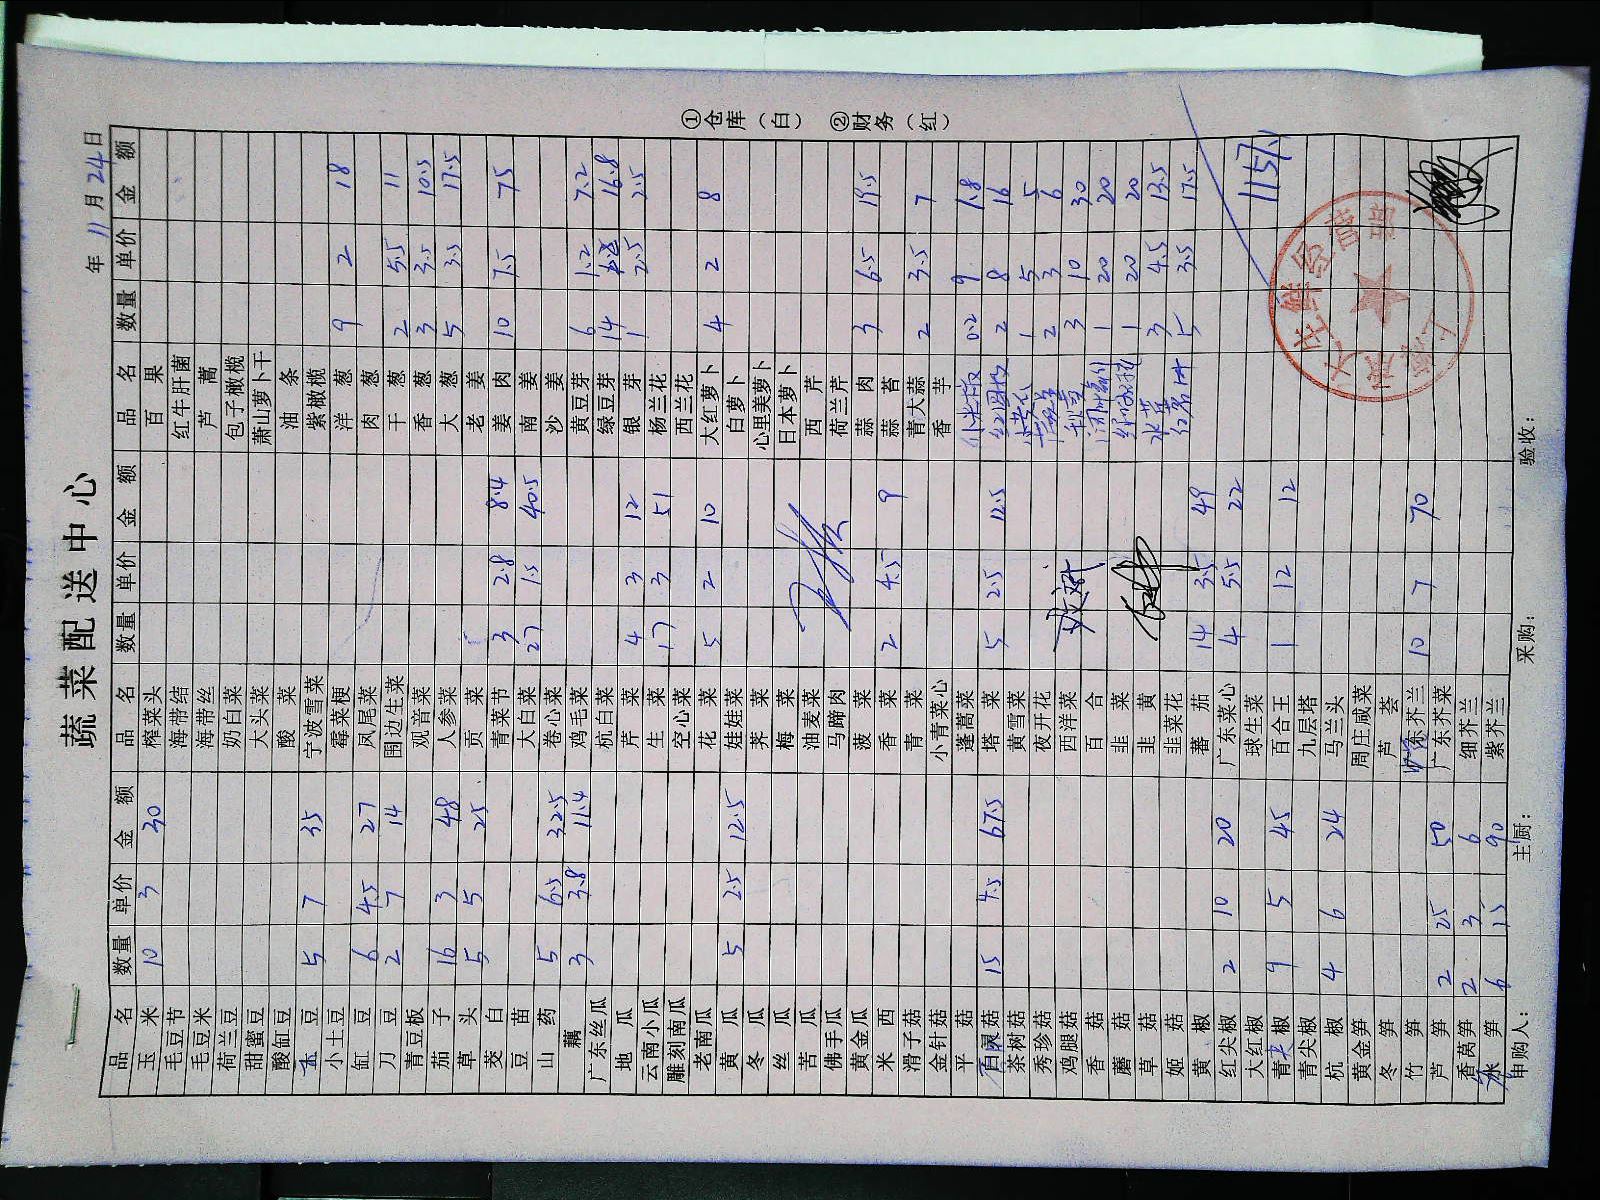 蔬菜配送中心
年 11 月 24 日
品名 数量 单价 金额 品名 数量 单价 金额 品名 数量 单价 金额
玉米 10 3 30 榨菜头 百果
毛豆节 海带结 红牛肝菌
毛豆米 海带丝 芦蒿
荷兰豆 奶白菜 包子橄榄
甜蜜豆 大头菜 萧山萝卜干
酸缸豆 酸菜 油条
豆 5 7 35 宁波雪菜 紫橄榄
小土豆 霉菜梗 洋葱 9 2 18
缸豆 6 4.5 27 凤尾菜 肉葱
刀豆 2 7 14 围边生菜 干葱 2 5.5 11
青豆板 观音菜 香葱 3 3.5 10.5
茄子 16 3 48 人参菜 大葱 5 3.5 17.5
草头 5 5 25 贡菜 老姜
茭白 青菜节 3 2.8 8.4 姜肉 10 7.5 75
豆苗 大白菜 27 1.5 40.5 南姜
山药 5 6.5 32.5 卷心菜 沙姜
藕 3 3.8 11.4 鸡毛菜 黄豆芽 6 1.2 7.2
广东丝瓜 杭白菜 绿豆芽 14 16.8
地瓜 芹菜 4 3 12 银芽 1 2.5 2.5
云南小瓜 生菜 17 3 51 杨兰花
雕刻南瓜 空心菜 西兰花
老南瓜 花菜 5 2 10 大红萝卜 4 2 8
黄瓜 5 2.5 12.5 娃娃菜 白萝卜
冬瓜 荠菜 心里美萝卜
丝瓜 梅菜 日本萝卜
苦瓜 油麦菜 西芹
佛手瓜 马蹄肉 荷兰芹
黄金瓜 菠菜 蒜肉 3 6.5 19.5
米西 香菜 2 4.5 9 蒜苔
滑子菇 青菜 青大蒜 2 3.5 7
金针菇 小青菜心 香芋
平菇 蓬蒿菜 0.2 9 1.8
百灵菇 15 4.5 67.5 塔菜 5 2.5 12.5 红圆椒 2 8 16
茶树菇 黄雪菜 1 5 5
秀珍菇 夜开花 2 3 6
鸡腿菇 西洋菜 3 10 30
香菇 百合 1 20 20
蘑菇 韭菜 1 20 20
草菇 韭黄 水芹 3 4.5 13.5
姬菇 韭菜花 红薯叶 5 3.5 17.5
黄椒 蕃茄 14 3.5 49
红尖椒 2 10 20 广东菜心 4 5.5 22
大红椒 球生菜 1157.1
青尖椒 9 5 45 百合王 1 12 12
青尖椒 九层塔
杭椒 4 6 24 马兰头
黄金笋 周庄咸菜
冬笋 芦荟
竹笋 东芥兰 10 7 70
芦笋 2 25 50 广东芥菜
香莴笋 2 3 6 细芥兰
笋 6 15 90 紫芥兰
申购人： 主厨： 采购： 验收：
①仓库（白） ②财务（红）